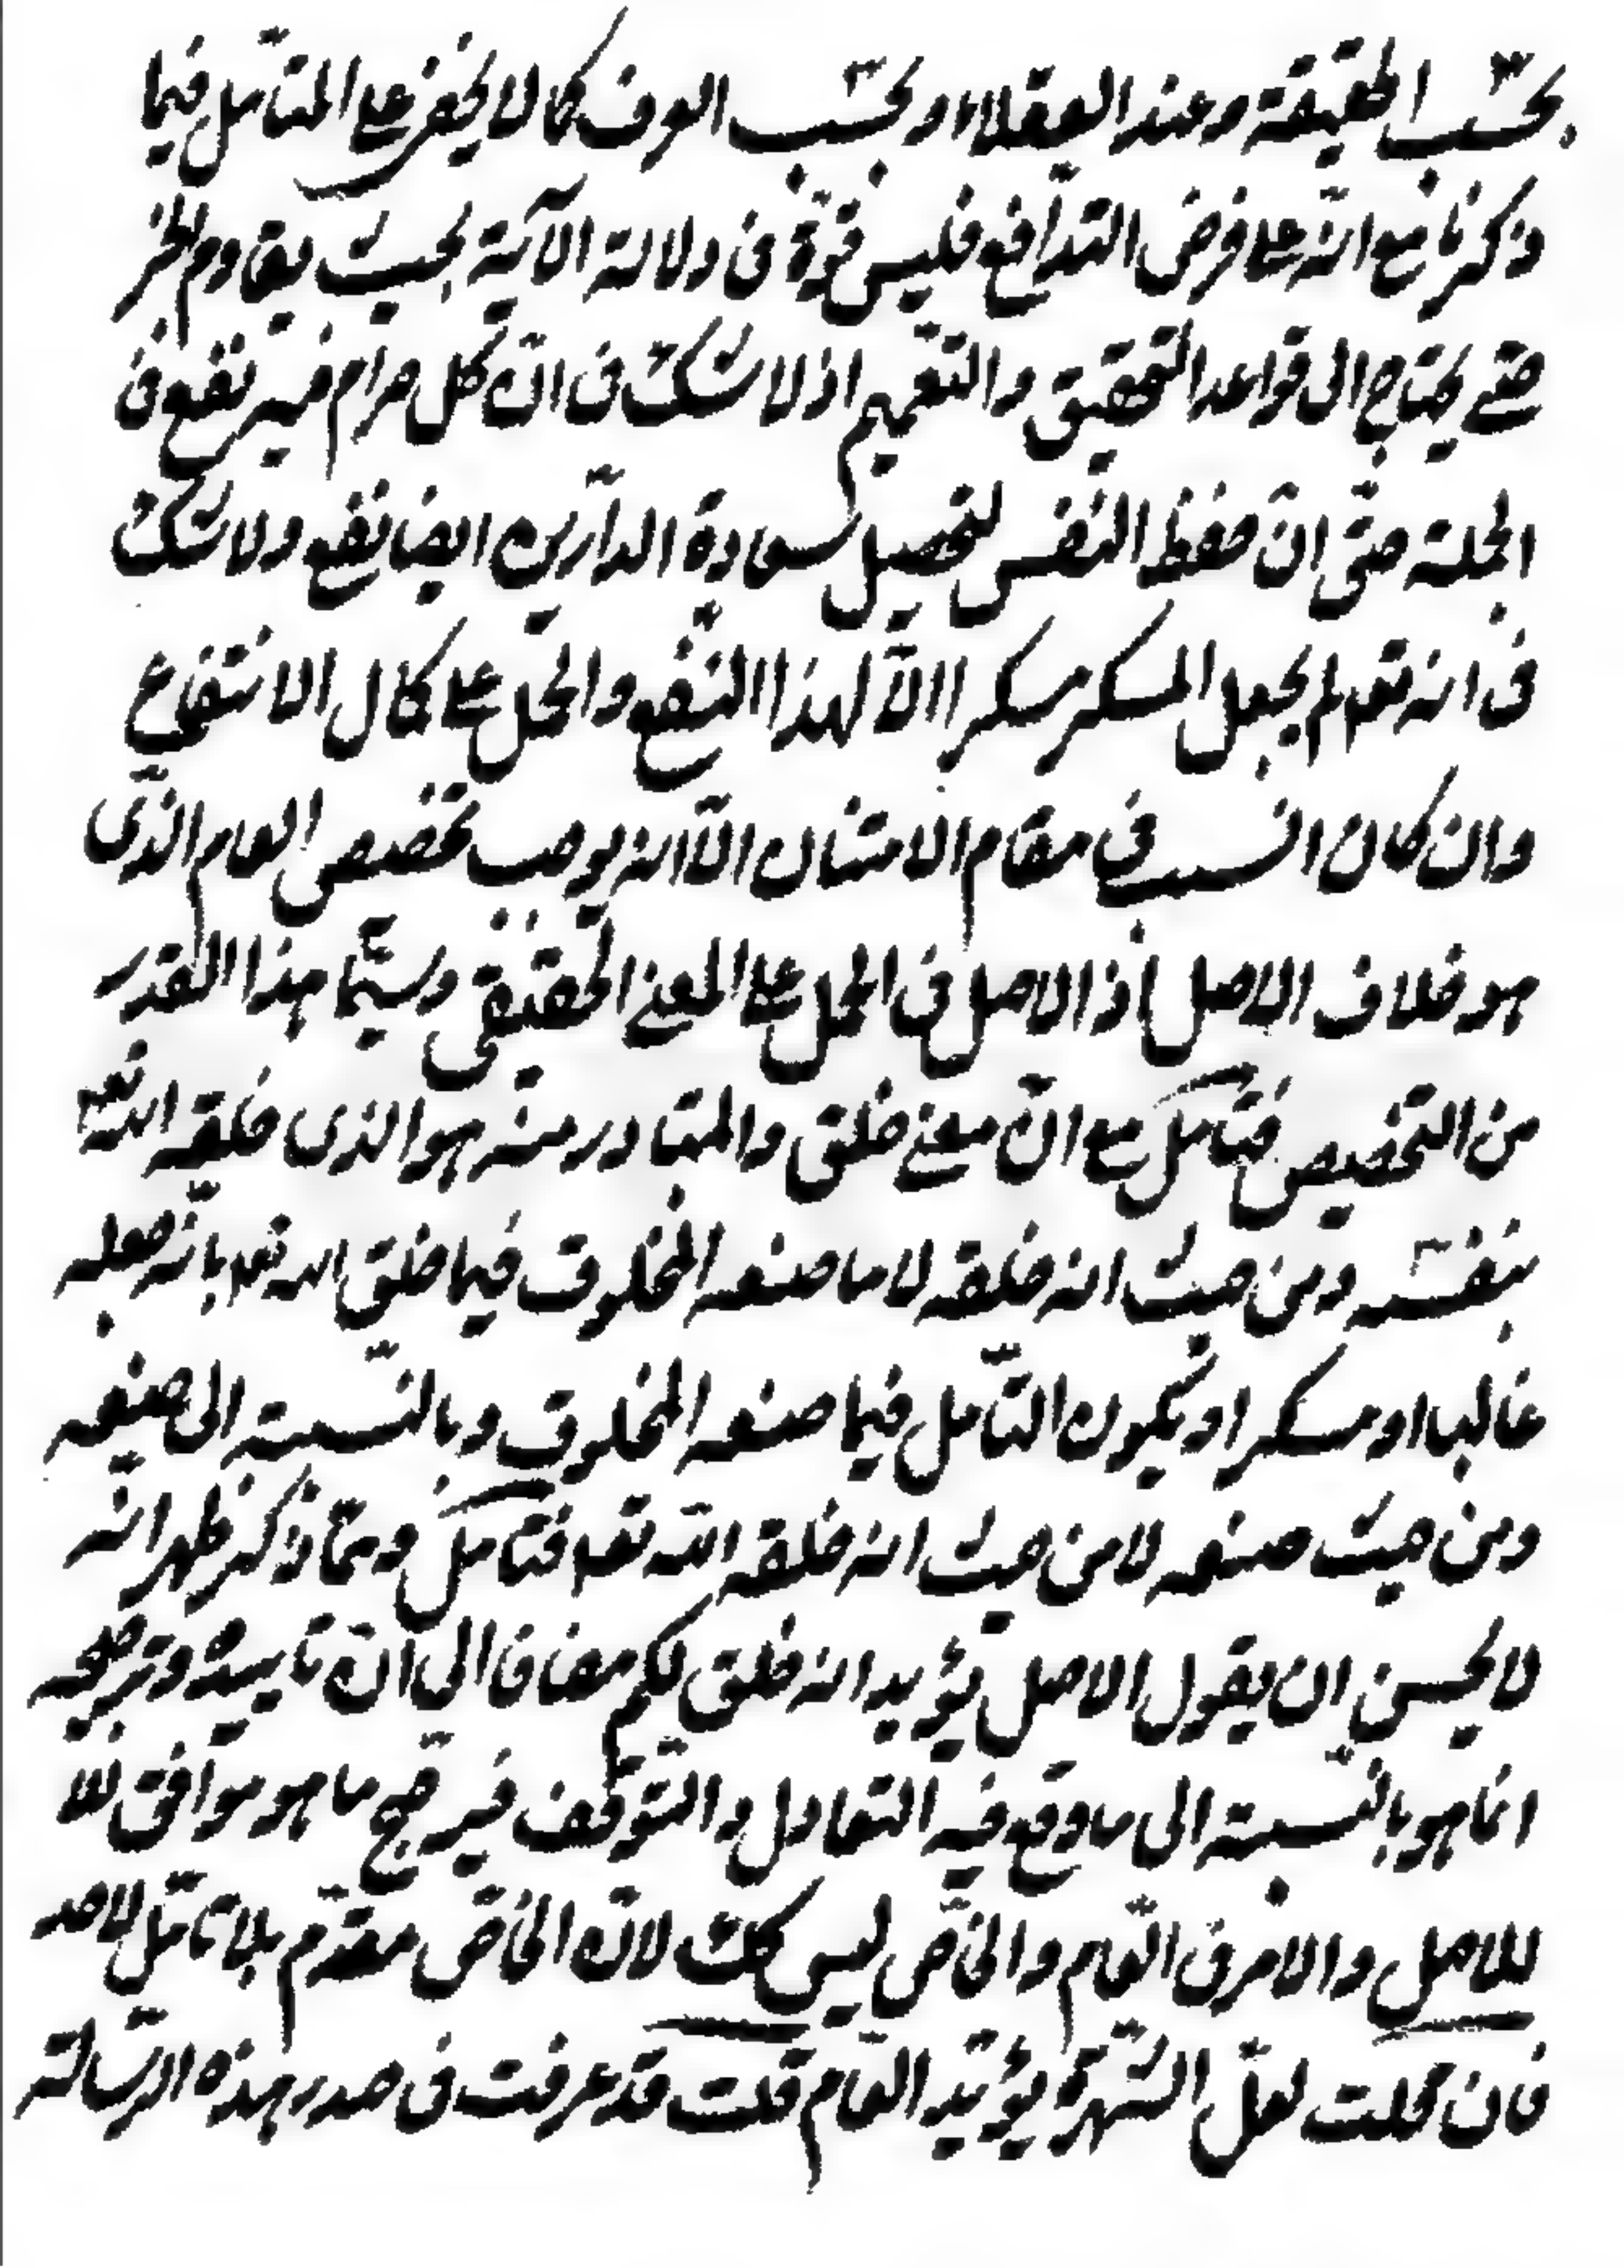 بحسب الحقيقة وعند العقلاء او بحسب العرف كما لا يخفى على المتأمل فيما
ذكرنا مع انّه على فرض التدافع فليس قوّة فى دلالة الآية بحيث يقاوم الخبر
حتى يحتاج الى قواعد التحقيق والتعميم اذ لا شك فى انّ كل حرام فيه نفع فى
الجملة حتّى انّ حفظ النفس لتحصيل سعادة الدارين ايضا نفع ولا شك
فى انه تعه لم يجعل المسكر مسكرا الّا لهذا النفع والحمل على كمال الانتفاع
وان كان انسب فى مقام الامتنان الّا انه يوجب تخصيص العام الذى
هو خلاف الاصل اذ الاصل فى الحمل على المعنى الحقيقى وسيّما هذا القدر
من التخصيص فتأمل مع انّ معنى خلق والمتبادر منه هو الذى خلقه الله تعه
بنفسه ومن حيث انه خلقه لا ما صنعه المخلوق فيما خلق الله تعه بانّه جعله
غالبا او مسكرا او يكون التأمل فيما صنعه المخلوق وبالنسبة الى صنعه
ومن حيث صنعه لا من حيث انه خلقه الله تعه فتأمل وممّا ذكر ظهر انّه
لا يحسن ان يقول الاصل يؤيد انه خلق لكم مضافا الى انّ تاييده وترجيحه
انما هو بالنسبة الى ما وقع فيه التعادل والتوقّف فيرجّح ما هو موافق
للاصل والامر فى العام والخاصّ ليس كك لانّ الخاصّ مقدّم بلا تامّل لاحد
فان قلت لعلّ الشهرة يؤيّد العام قلت قد عرفت فى صدر هذه الرسالة